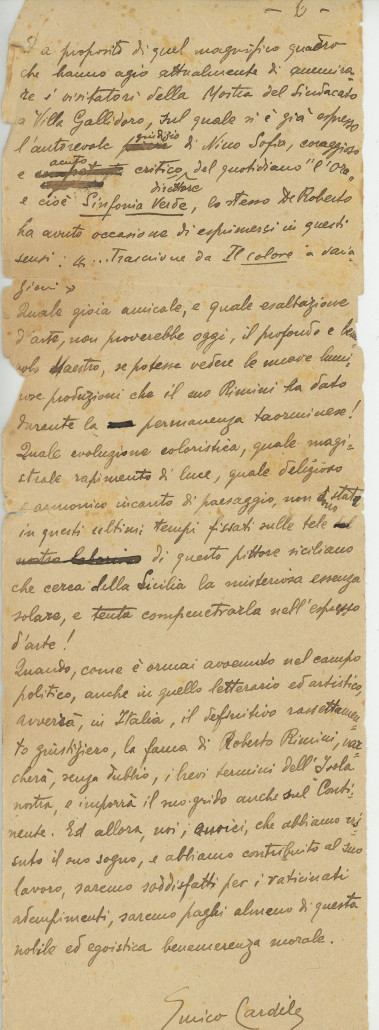 - 6 -
E a proposito di quel magnifico quadro
che hanno agio attualmente di ammira-
re i visitatori della Mostra del Sindacato
a Villa Gallidoro, sul quale si è già espresso
l'autorevole giudizio di Nino Sofia, coraggioso
e acuto critico del quotidiano "l'Ora"
direttore
e cioè Sinfonia Verde, lo stesso De Roberto
ha avuto occasione di esprimersi in questi
sensi: «...Trascrizione da Il colore a varia-
zioni»
Quale gioia amicale, e quale esaltazione
d'arte, non proverebbe oggi, il profondo e bene-
volo Maestro, se potesse vedere le nuove lumi-
nose produzioni che il suo Rimini ha dato
durante la permanenza taorminese!
Quale evoluzione coloristica, quale magi-
strale rapimento di luce, quale delizioso
e armonico incanto di paesaggio, non state
in questi ultimi tempi fissati sulle tele
di questo pittore siciliano
che cerca della Sicilia la misteriosa essenza
solare, e tenta compenetrarla nell'espresso
d'arte!
Quando, come è ormai avvenuto nel campo
politico, anche in quello letterario ed artistico,
avverrà, in Italia, il definitivo rassettamen-
to giustiziero, la fama di Roberto Rimini, var-
cherà, senza dubbio, i brevi termini dell'Isola
nostra, e imporrà il suo grido anche sul Conti-
nente. Ed allora, noi, amici, che abbiamo vis-
suto il suo sogno, e abbiamo contribuito al suo
lavoro, saremo soddisfatti per i vaticinati
adempimenti, saremo paghi almeno di questa
nobile ed egoistica benemerenza morale.
Enrico Cardile